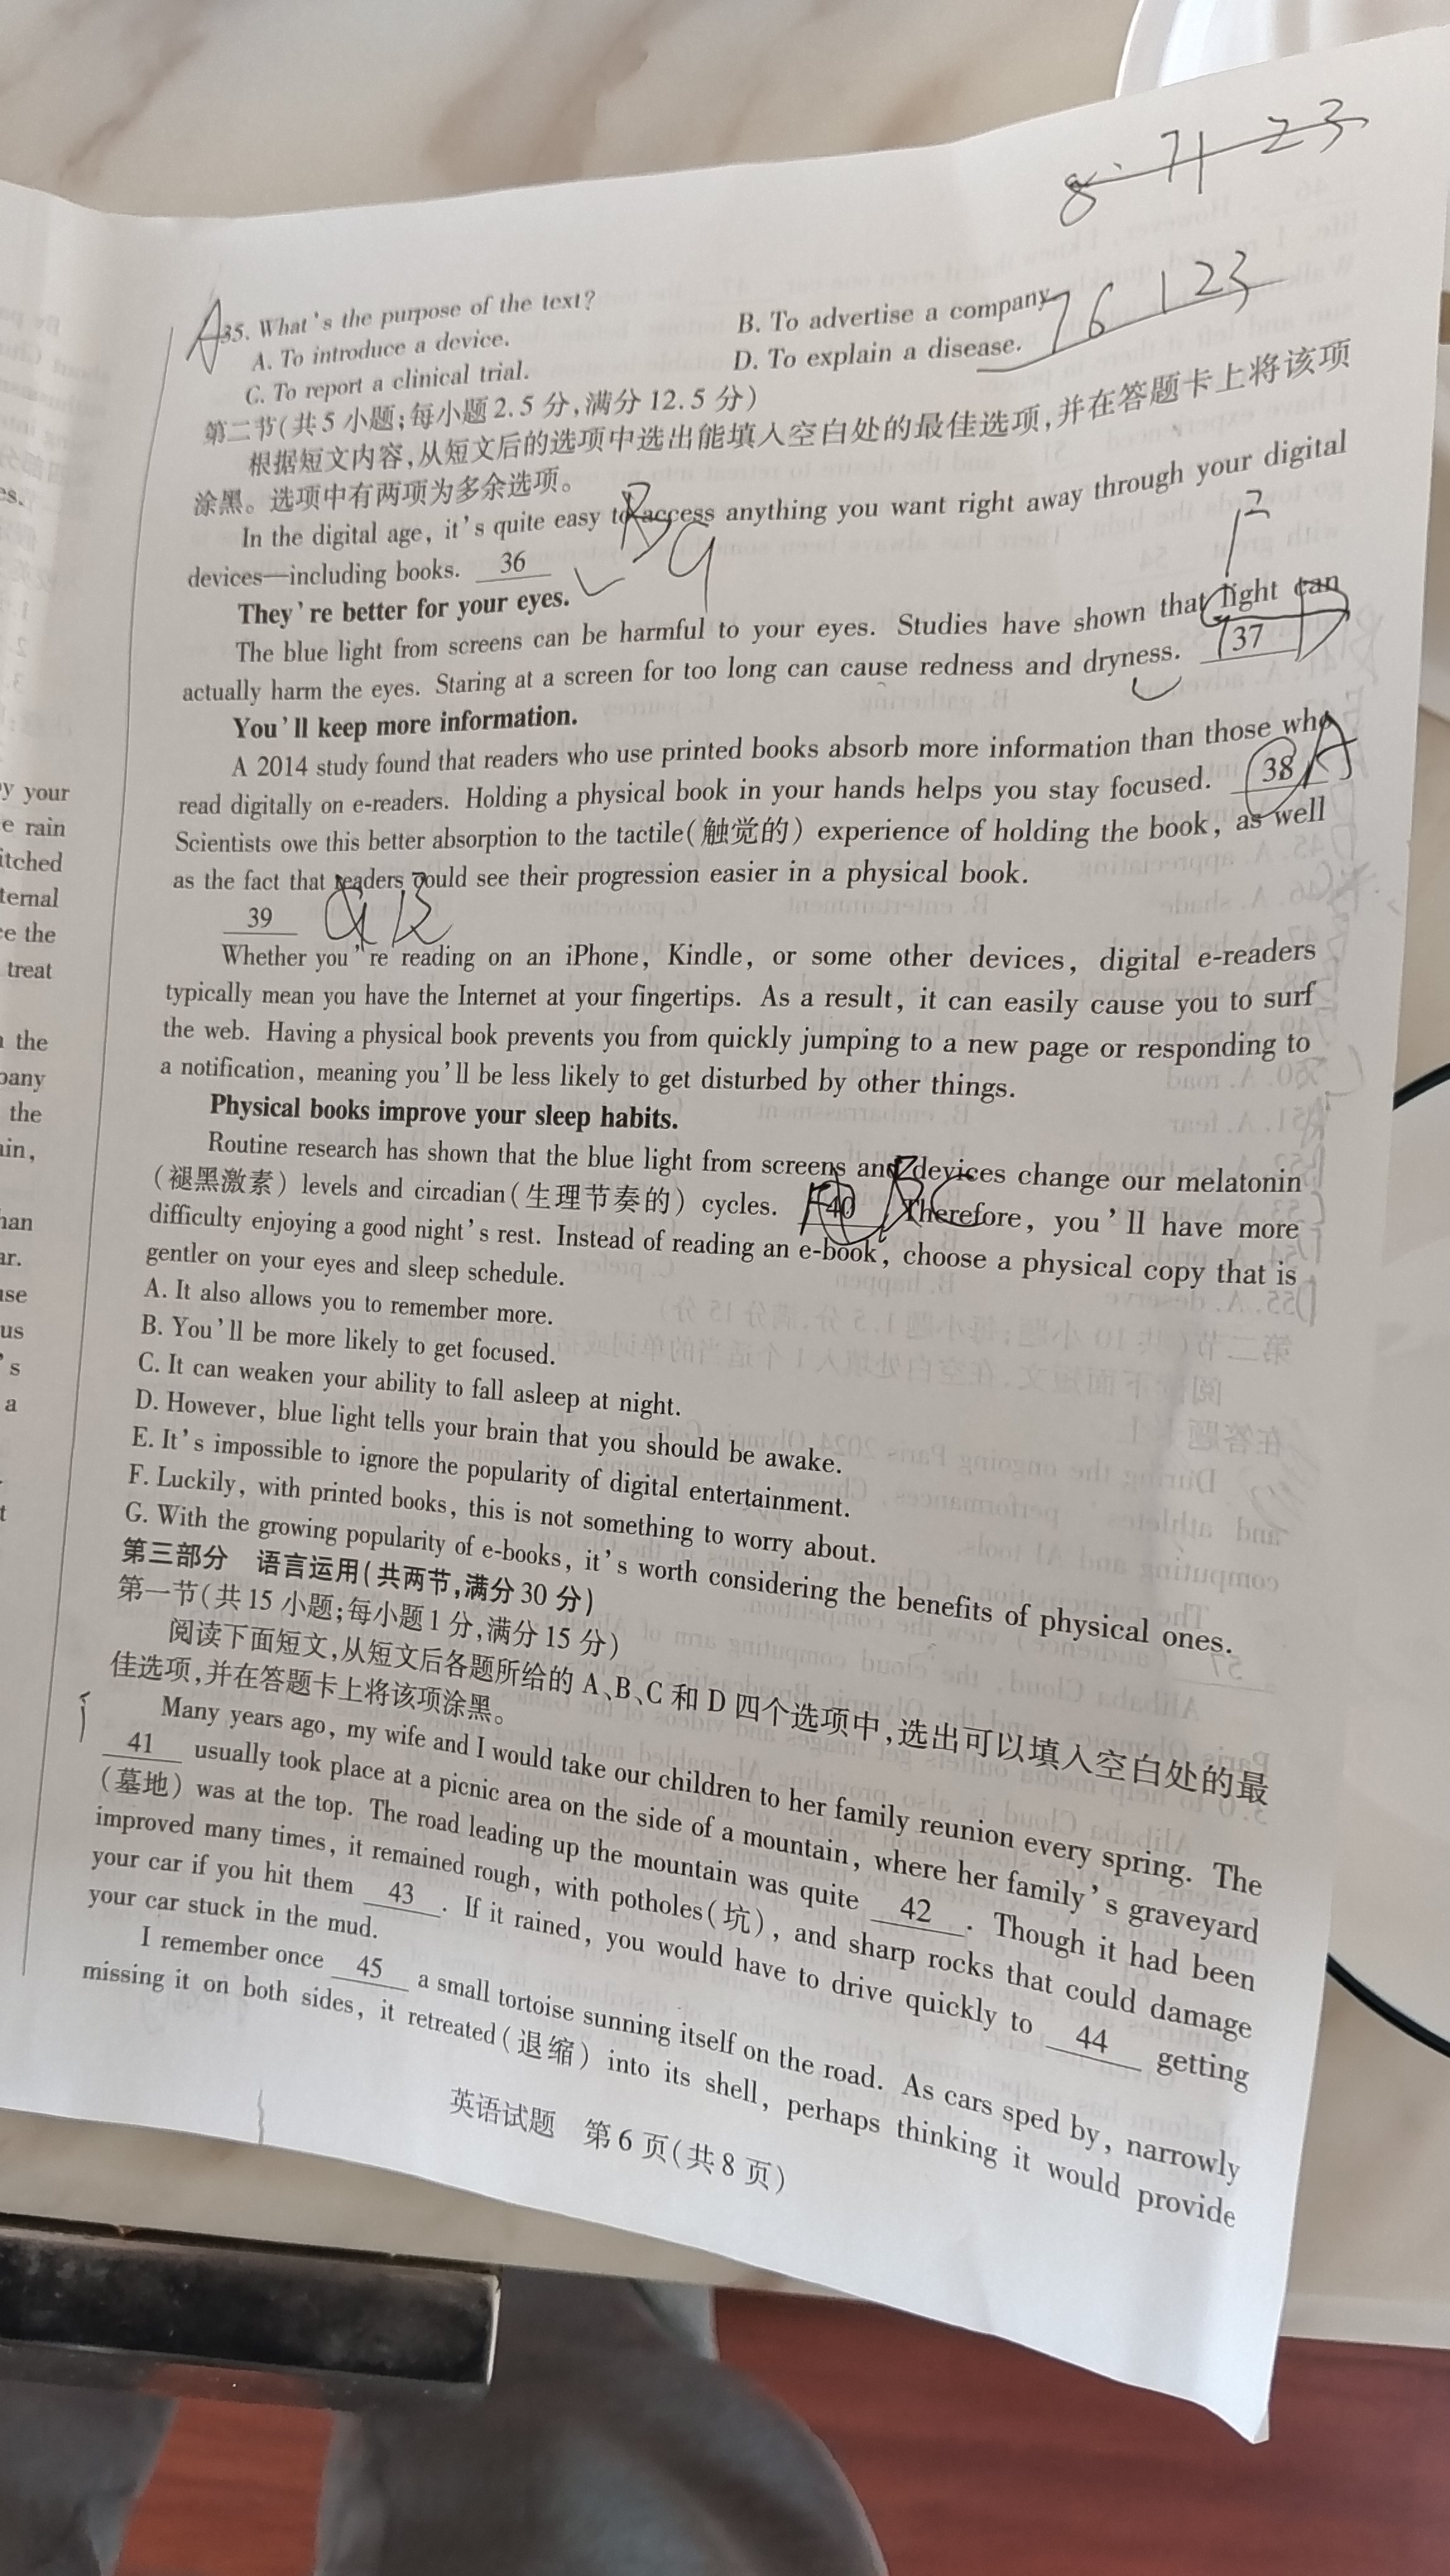 8. 71 23
A
35. What's the purpose of the text?
A. To introduce a device.
B. To advertise a company.
C. To report a clinical trial.
D. To explain a disease.
76 123
第二节(共5小题;每小题2.5分,满分12.5分)
根据短文内容,从短文后的选项中选出能填入空白处的最佳选项,并在答题卡上将该项
涂黑。选项中有两项为多余选项。
In the digital age, it's quite easy to access anything you want right away through your digital
devices—including books. 36
They're better for your eyes.
The blue light from screens can be harmful to your eyes. Studies have shown that light can
actually harm the eyes. Staring at a screen for too long can cause redness and dryness. 37
You'll keep more information.
A 2014 study found that readers who use printed books absorb more information than those who
read digitally on e-readers. Holding a physical book in your hands helps you stay focused. 38 A
Scientists owe this better absorption to the tactile(触觉的) experience of holding the book, as well
as the fact that readers could see their progression easier in a physical book.
39 G B
Whether you're reading on an iPhone, Kindle, or some other devices, digital e-readers
typically mean you have the Internet at your fingertips. As a result, it can easily cause you to surf
the web. Having a physical book prevents you from quickly jumping to a new page or responding to
a notification, meaning you'll be less likely to get disturbed by other things.
Physical books improve your sleep habits.
Routine research has shown that the blue light from screens and devices change our melatonin
(褪黑激素) levels and circadian(生理节奏的) cycles. 40 Therefore, you'll have more
difficulty enjoying a good night's rest. Instead of reading an e-book, choose a physical copy that is
gentler on your eyes and sleep schedule.
A. It also allows you to remember more.
B. You'll be more likely to get focused.
C. It can weaken your ability to fall asleep at night.
D. However, blue light tells your brain that you should be awake.
E. It's impossible to ignore the popularity of digital entertainment.
F. Luckily, with printed books, this is not something to worry about.
G. With the growing popularity of e-books, it's worth considering the benefits of physical ones.
第三部分 语言运用(共两节,满分30分)
第一节(共15小题;每小题1分,满分15分)
阅读下面短文,从短文后各题所给的A、B、C和D四个选项中,选出可以填入空白处的最
佳选项,并在答题卡上将该项涂黑。
Many years ago, my wife and I would take our children to her family reunion every spring. The
41 usually took place at a picnic area on the side of a mountain, where her family's graveyard
(墓地) was at the top. The road leading up the mountain was quite 42 . Though it had been
improved many times, it remained rough, with potholes(坑), and sharp rocks that could damage
your car if you hit them 43 . If it rained, you would have to drive quickly to 44 getting
your car stuck in the mud.
I remember once 45 a small tortoise sunning itself on the road. As cars sped by, narrowly
missing it on both sides, it retreated(退缩) into its shell, perhaps thinking it would provide
英语试题 第6页(共8页)